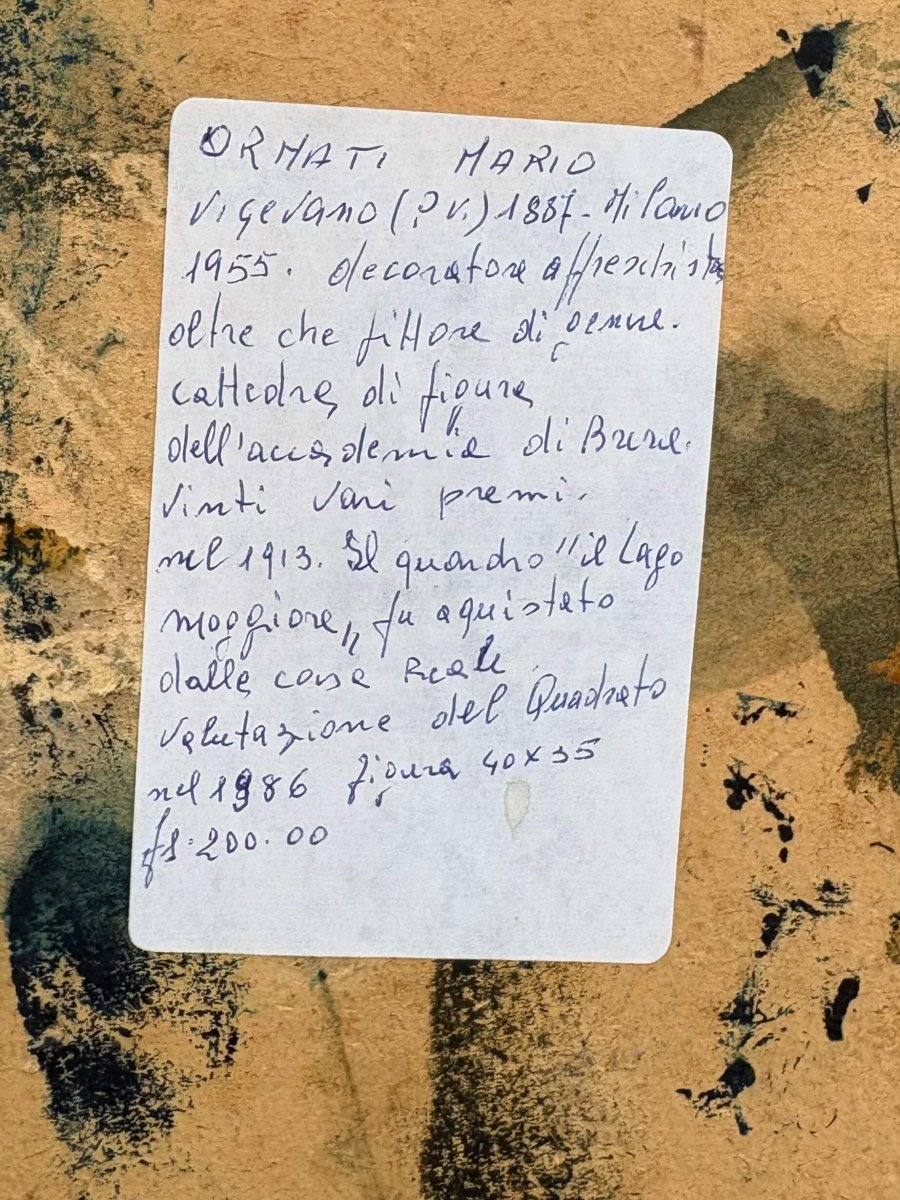 ORMATI MARIO
Vigevano (P.V.) 1887 - Milano
1955. decoratore affreschista
oltre che pittore di genere.
cattedra di figura
dell'accademia di Brera.
vinti vari premi.
nel 1913. Il quandro "il Lago
maggiore" fu aquistato
dalla casa Reale
valutazione del Quadrato
nel 1986 figura 40x35
£ 1.200.00